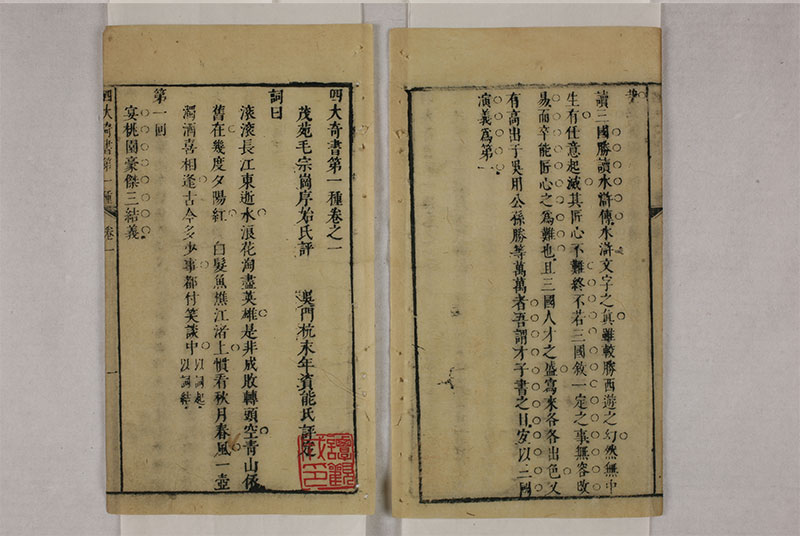 書
讀三國勝讀水滸傳水滸文字之真雖較勝西遊之幻然無中
生有任意起滅其匠心不難終不若三國敘一定之事無容改
易而卒能匠心之為難也且三國人才之盛寫來各各出色又
有高出于吳用公孫勝等萬萬者吾謂才子書之目宜以三國
演義為第一
四大奇書第一種卷之一
茂苑毛宗崗序始氏評 吳門杭永年資能氏評定
詞曰
滾滾長江東逝水浪花淘盡英雄是非成敗轉頭空青山依
舊在幾度夕陽紅 白髮魚樵江渚上慣看秋月春風一壺
濁酒喜相逢古今多少事都付笑談中 以詞起 以詞結
第一回
宴桃園豪傑三結義
四大奇書第一種 卷一 一